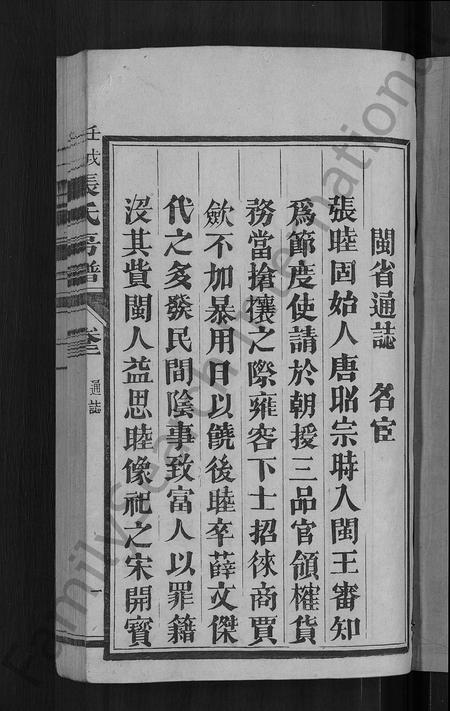 閩省通誌　名宦
張睦固始人唐昭宗時入閩王審知
為節度使請於朝授三品官領榷貨
務當搶攘之際雍容下士招徠商賈
斂不加暴用日以饒後睦卒薛文傑
代之多發民間陰事致富人以罪籍
沒其貲閩人益思睦像祀之宋開寶
壬戌張氏房譜
卷
通誌
一
FamilySearch International